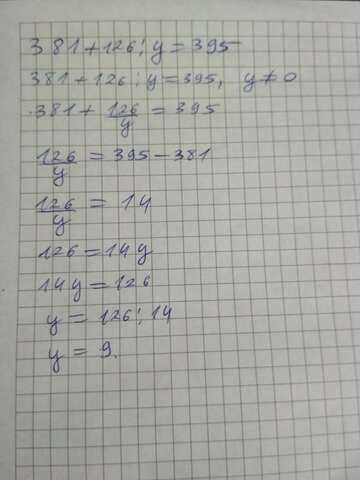 381+126:y=395
381+126:y=395, y≠0
381+ 126/y = 395
126/y = 395-381
126/y = 14
126=14y
14y=126
y = 126:14
y = 9.